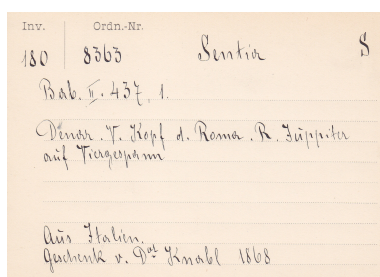 Inv. Ordn.-Nr.
180 8363 Sentia S
Bab. II. 437, 1.
Denar. V. Kopf d. Roma. R. Juppiter
auf Viergespann
Aus Italien.
Geschenk v. Dor Knabl 1868